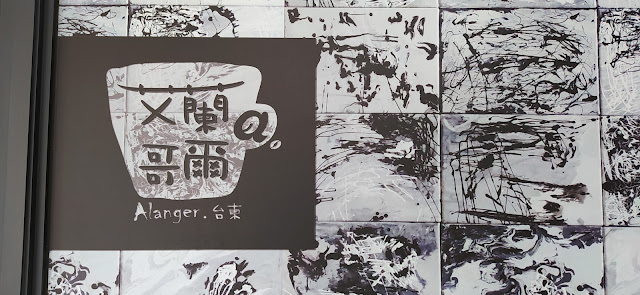 艾蘭@
哥爾
Alanger.台東